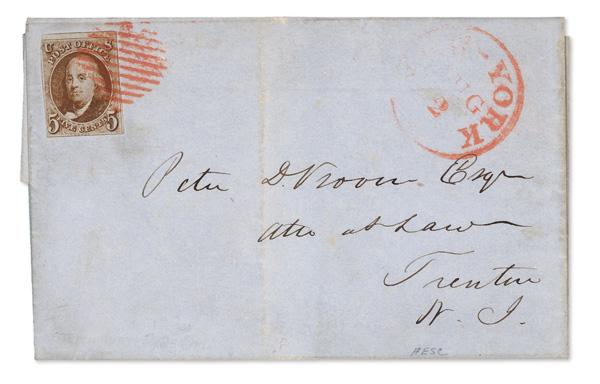 POST OFFICE
FIVE CENTS
5 5
YORK
2
Peter D. Vroom Esqr
Atto at Law
Trenton
N. J.
AESC